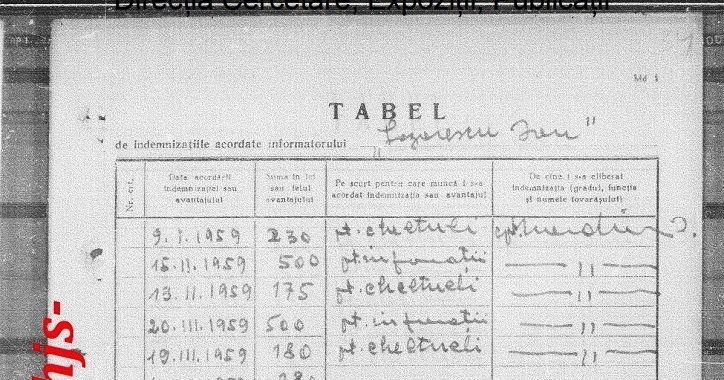 Direcția Cercetare, Expoziții, Publicații
Md 1
TABEL
de indemnizațiile acordate informatorului „Lazarescu Ion”
Nr. crt. Data acordării indemnizației sau avantajului Suma în lei sau felul avantajului Pe scurt pentru care muncă i s-a acordat indemnizația sau avantajul De cine i s-a eliberat indemnizația (gradul, funcția și numele tovarășului)
9.I.1959 230 pt. cheltueli cpt.
15.II.1959 500 pt. informații — " —
13.II.1959 175 pt. cheltueli — " —
20.III.1959 500 pt. informații — " —
19.III.1959 180 pt. cheltueli — " —
hjs-